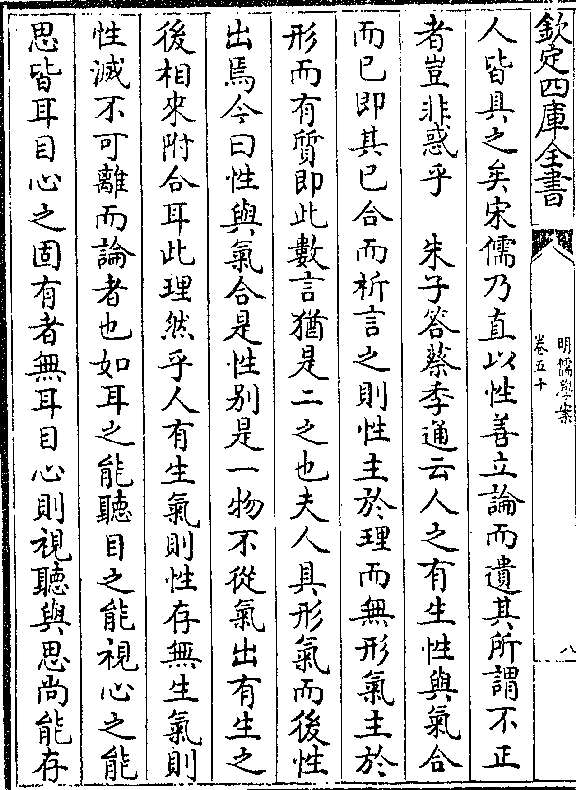 欽定四庫全書
明儒學案
卷五十
八
人皆具之矣宋儒乃直以性善立論而遺其所謂不正
者豈非惑乎　朱子答蔡季通云人之有生性與氣合
而已即其已合而析言之則性主於理而無形氣主於
形而有質即此數言猶是二之也夫人具形氣而後性
出焉今曰性與氣合是性别是一物不從氣出有生之
後相來附合耳此理然乎人有生氣則性存無生氣則
性滅不可離而論者也如耳之能聽目之能視心之能
思皆耳目心之固有者無耳目心則視聽與思尚能存